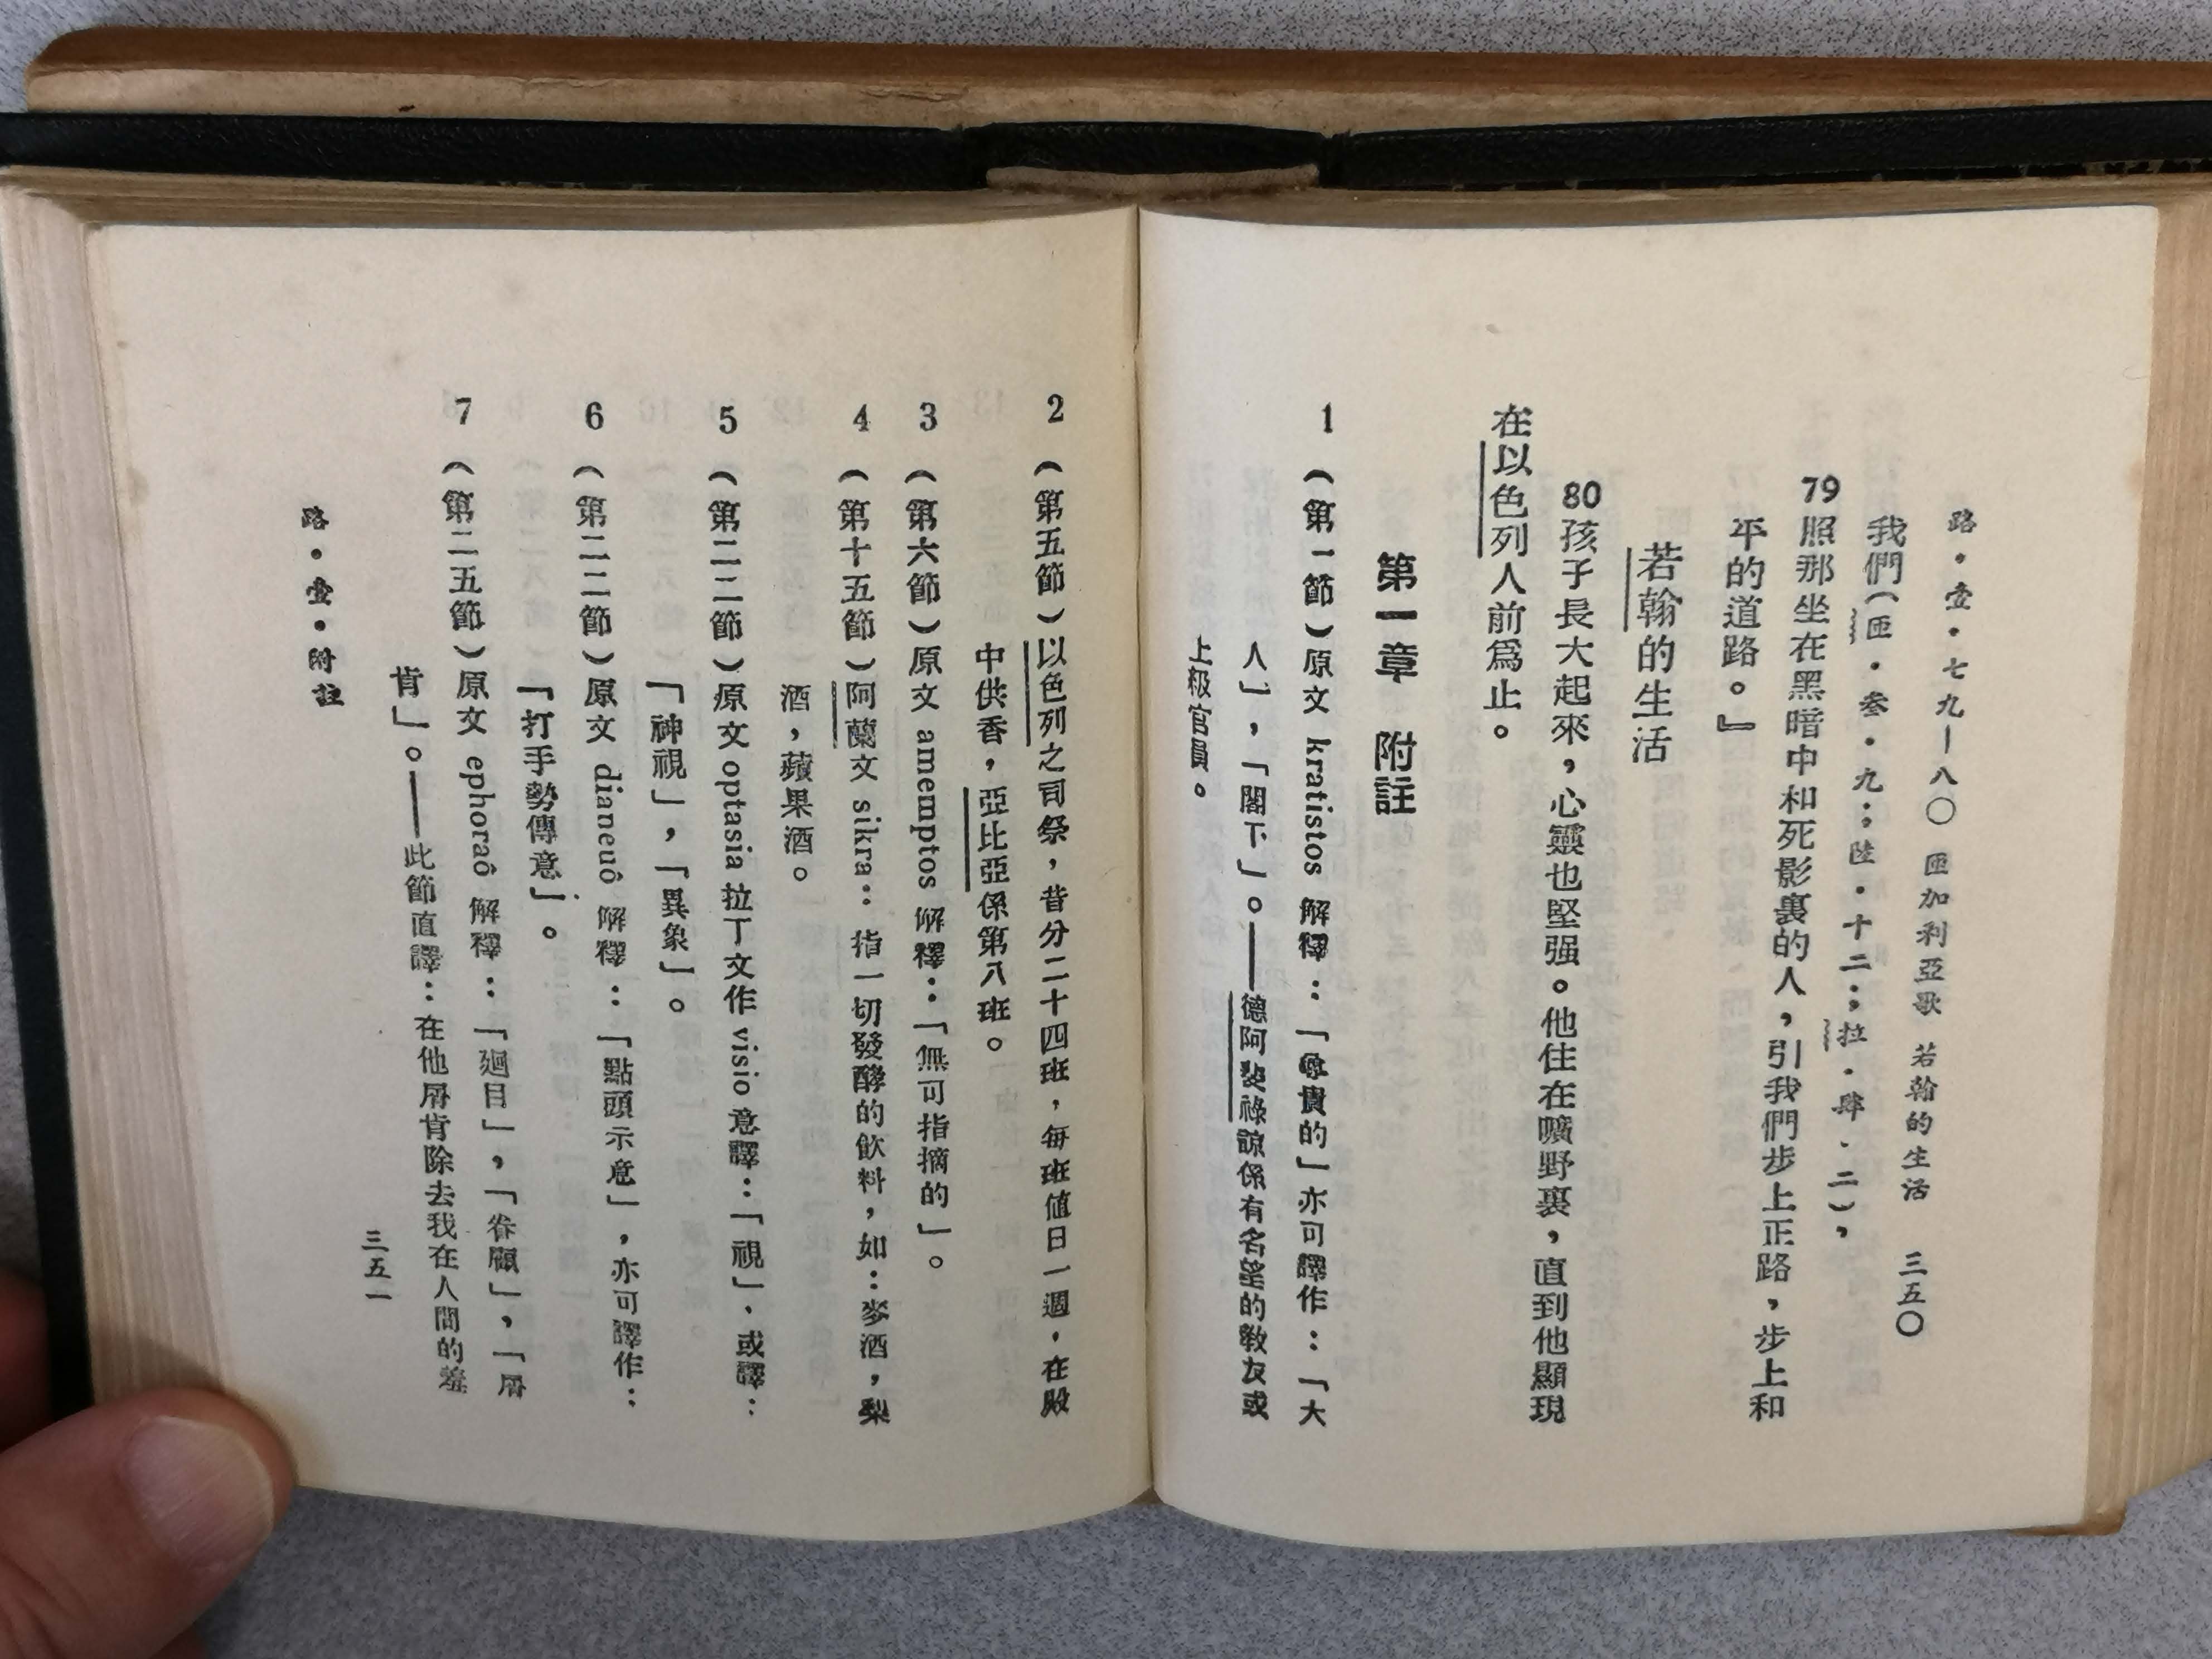 路・壹・七九—八〇 匝加利亞歌 若翰的生活 三五〇
我們（匝・叁・九；陸・十二；拉・肆・二），
79照那坐在黑暗中和死影裏的人，引我們步上正路，步上和
平的道路。』
若翰的生活
80孩子長大起來，心靈也堅强。他住在曠野裏，直到他顯現
在以色列人前爲止。
第一章 附註
1 （第一節）原文 kratistos 解釋：「尊貴的」亦可譯作：「大
人」，「閣下」。——德阿斐祿諒係有名望的教友或
上級官員。
2 （第五節）以色列之司祭，昔分二十四班，每班值日一週，在殿
中供香，亞比亞係第八班。
3 （第六節）原文 amemptos 解釋：「無可指摘的」。
4 （第十五節）阿蘭文 sikra：指一切發酵的飲料，如：麥酒，梨
酒，蘋果酒。
5 （第二二節）原文 optasia 拉丁文作 visio 意譯：「視」，或譯：
「神視」，「異象」。
6 （第二二節）原文 dianeuô 解釋：「點頭示意」，亦可譯作：
「打手勢傳意」。
7 （第二五節）原文 ephoraô 解釋：「廻目」，「眷顧」，「屑
肯」。——此節直譯：在他屑肯除去我在人間的羞
路・壹・附註
三五一